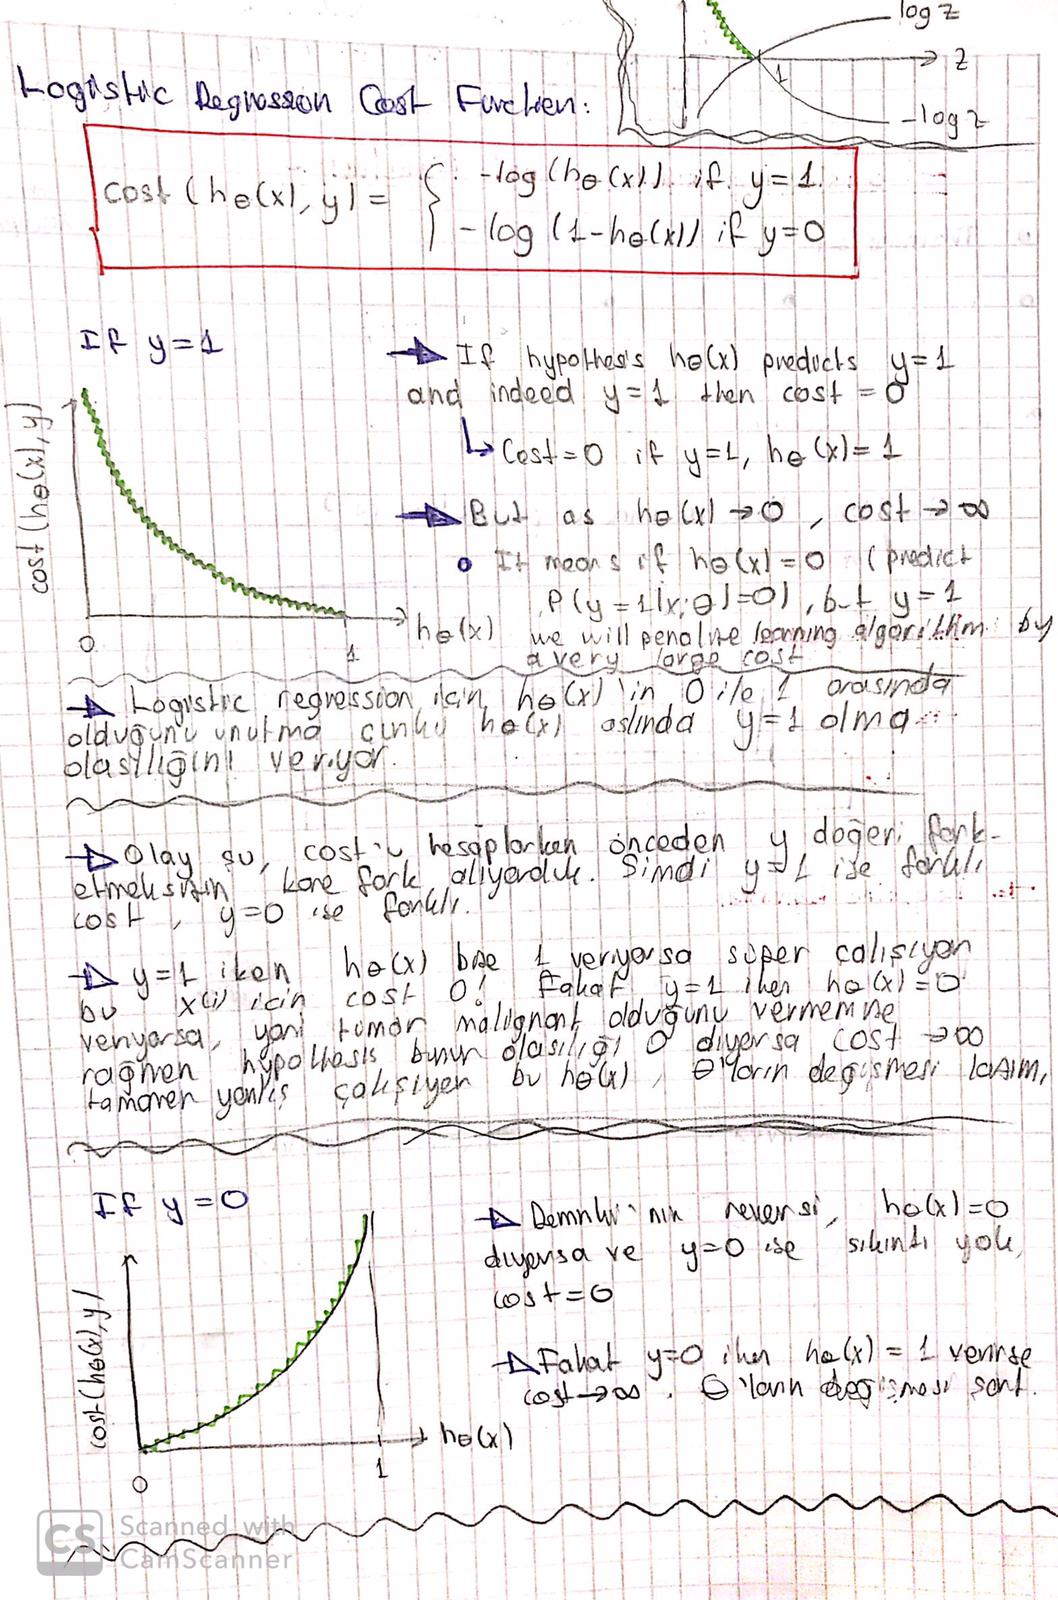 log z
z
1
-log z
Logistic Regression Cost Function:
cost (hθ(x), y) = { -log (hθ(x)) if y=1
-log (1-hθ(x)) if y=0
If y=1
cost (hθ(x), y)
0
1
hθ(x)
If hypothesis hθ(x) predicts y=1
and indeed y=1 then cost = 0
Cost=0 if y=1, hθ(x)=1
But as hθ(x) → 0, cost → ∞
It means if hθ(x)=0 (predict
P(y=1|x;θ)=0), but y=1
we will penalize learning algorithm by
a very large cost
Logistic regression için hθ(x)'in 0 ile 1 arasında
olduğunu unutma çünkü hθ(x) aslında y=1 olma
olasılığını veriyor.
Olay şu, cost'u hesaplarken önceden y değeri fark-
etmeksizin kare fark alıyorduk. Şimdi y=1 ise farklı
cost, y=0 ise farklı.
y=1 iken hθ(x) bize 1 veriyorsa süper çalışıyor
bu x(i) için cost 0! Fakat y=1 iken hθ(x)=0
veriyorsa, yani tümör malignant olduğunu vermemne
rağmen hypothesis bunun olasılığı 0 diyorsa cost → ∞
tamamen yanlış çalışıyor bu hθ(x), θ'ların değişmesi lazım,
If y=0
cost (hθ(x), y)
0
1
hθ(x)
Deminki'nin reversi, hθ(x)=0
diyorsa ve y=0 ise sıkıntı yok,
cost=0
Fakat y=0 iken hθ(x) = 1 verirse
cost → ∞, θ'ların değişmesi şart.
CS Scanned with
CamScanner